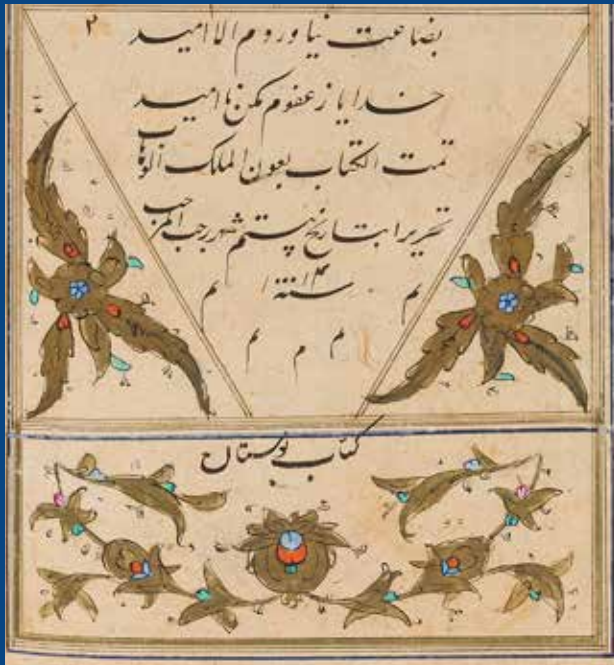 ۲
بضاعت نیاوردم الا امید
خدایا ز عفوم مکن ناامید
تمت الکتاب بعون الملک الوهاب
تحریرا بتاریخ بیستم شهر رجب المرجب
سنة
م م
م م م
کتاب بوستان